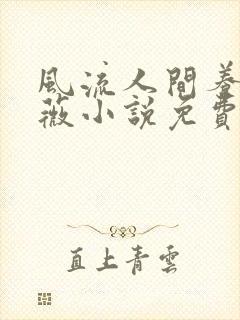 風流人間養
薇小說免費
直上青雲